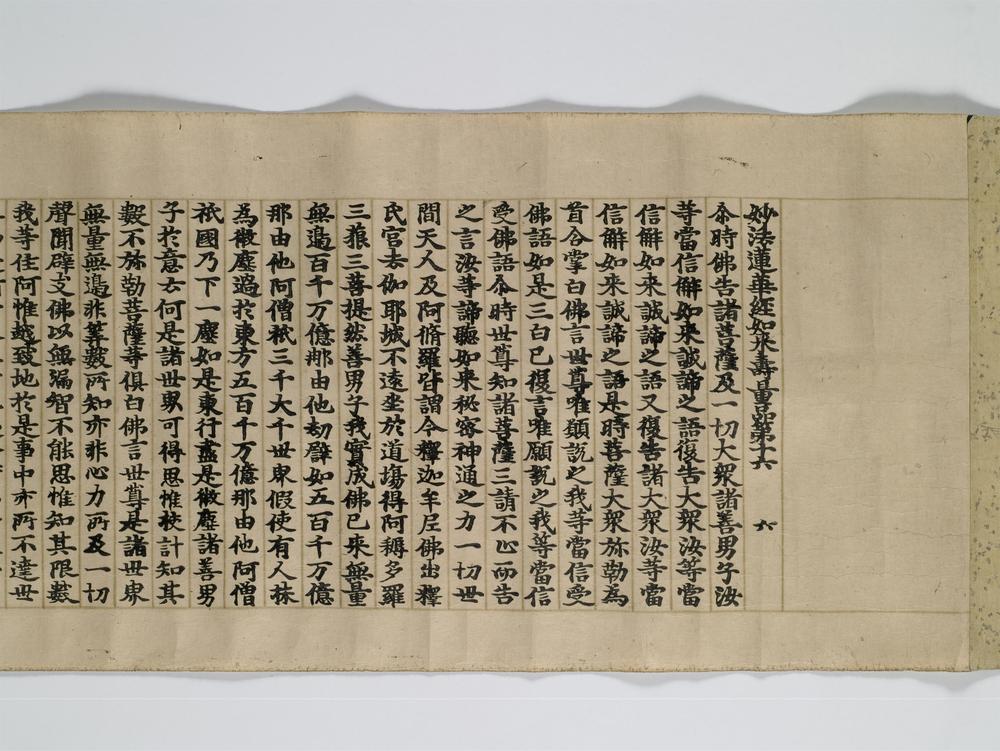 妙法蓮華經如來壽量品第十六 六
尒時佛告諸菩薩及一切大衆諸善男子汝
等當信解如來誠諦之語復告大衆汝等當
信解如來誠諦之語又復告諸大衆汝等當
信解如來誠諦之語是時菩薩大衆弥勒為
首合掌白佛言世尊唯願説之我等當信受
佛語如是三白已復言唯願説之我等當信
受佛語尒時世尊知諸菩薩三請不止而告
之言汝等諦聽如來秘密神通之力一切世
間天人及阿脩羅皆謂今釋迦牟尼佛出釋
氏宮去伽耶城不遠坐於道場得阿耨多羅
三藐三菩提然善男子我實成佛已來無量
無邊百千万億那由他劫譬如五百千万億
那由他阿僧祇三千大千世界假使有人抹
為微塵過於東方五百千万億那由他阿僧
祇國乃下一塵如是東行盡是微塵諸善男
子於意云何是諸世界可得思惟挍計知其
數不弥勒菩薩等俱白佛言世尊是諸世界
無量無邊非筭數所知亦非心力所及一切
聲聞辟支佛以無漏智不能思惟知其限數
我等住阿惟越致地於是事中亦所不達世